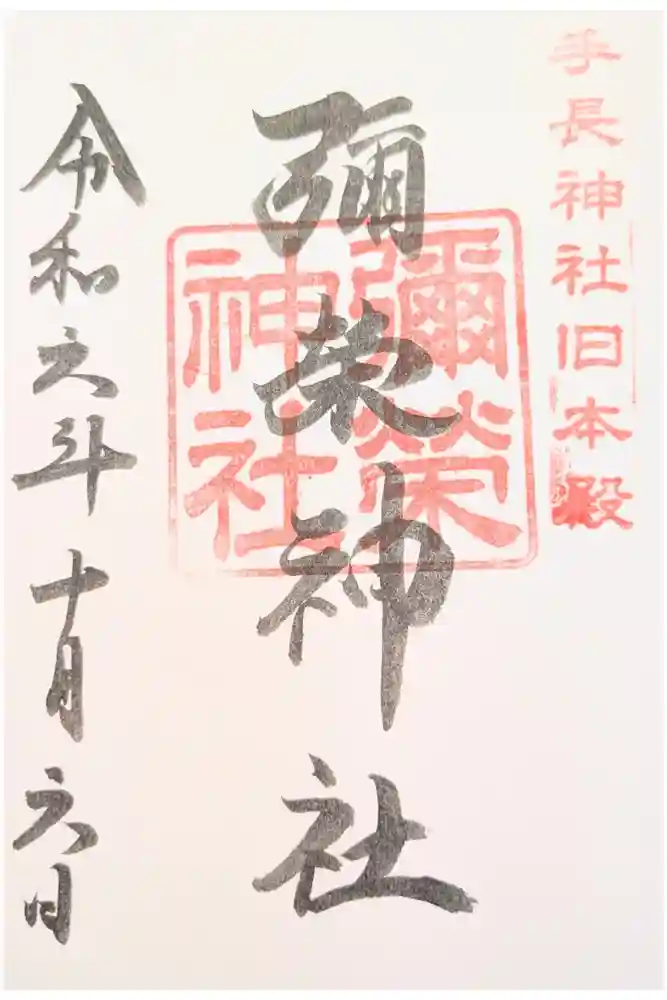 手長神社旧本殿
彌榮神社
彌榮
神社
令和六年十月六日